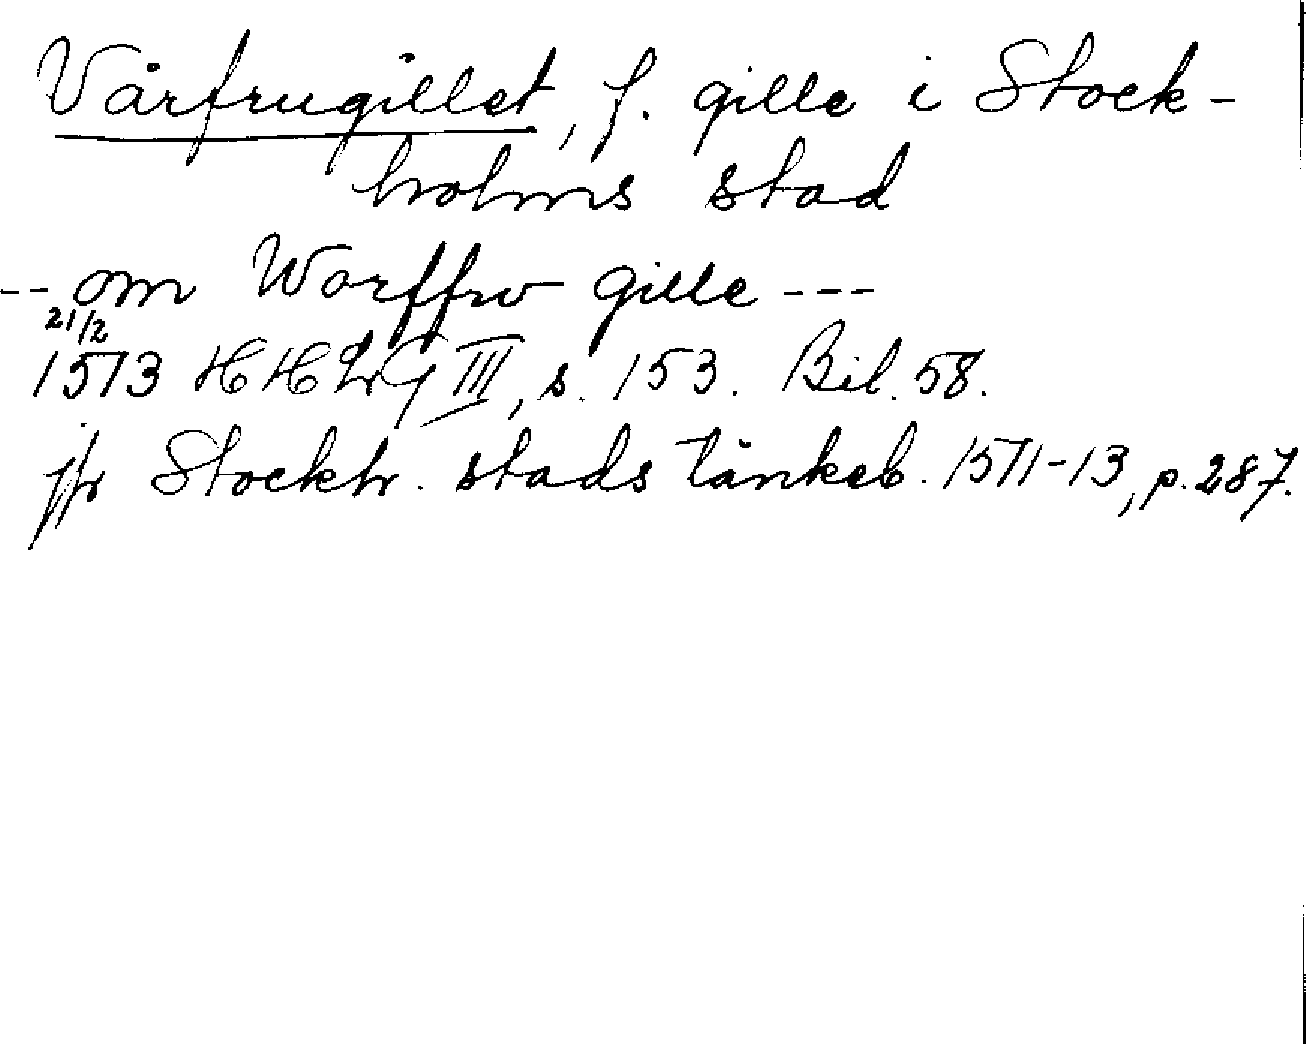 Vårfrugillet, f. gille i Stock-
holms stad
-- om Worffrv gille ---
21/2
1573 HHLG III, s. 153. Bil. 58.
jfr Stockh. stads tänkeb. 1571-73, p. 287.